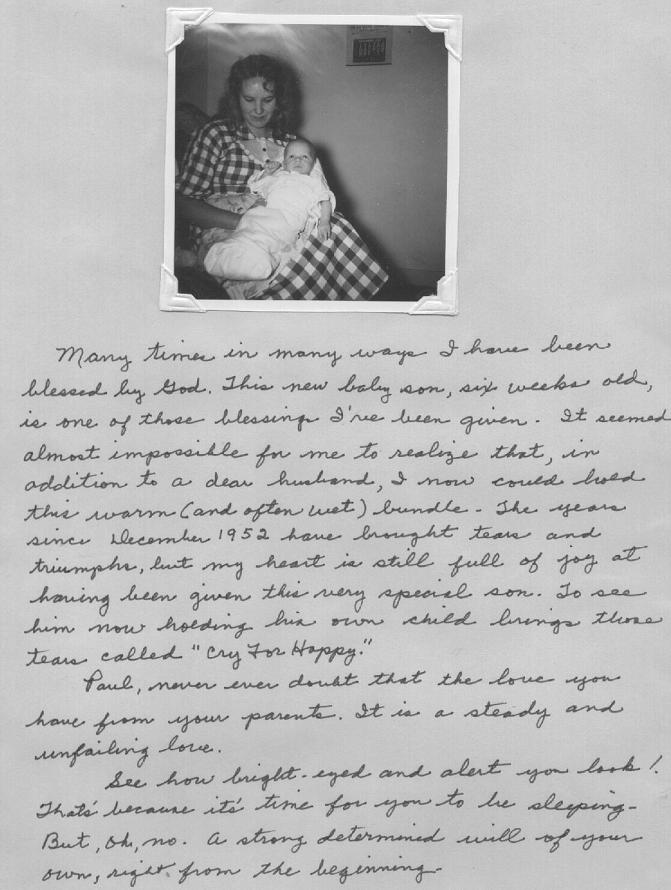 Many times in many ways I have been
blessed by God. This new baby son, six weeks old,
is one of those blessings I've been given. It seemed
almost impossible for me to realize that, in
addition to a dear husband, I now could hold
this warm (and often wet) bundle. The years
since December 1952 have brought tears and
triumphs, but my heart is still full of joy at
having been given this very special son. To see
him now holding his own child brings those
tears called "Cry For Happy."
Paul, never ever doubt that the love you
have from your parents. It is a steady and
unfailing love.
See how bright-eyed and alert you look!
That's because it's time for you to be sleeping.
But, Oh, no. A strong determined will of your
own, right from the beginning.